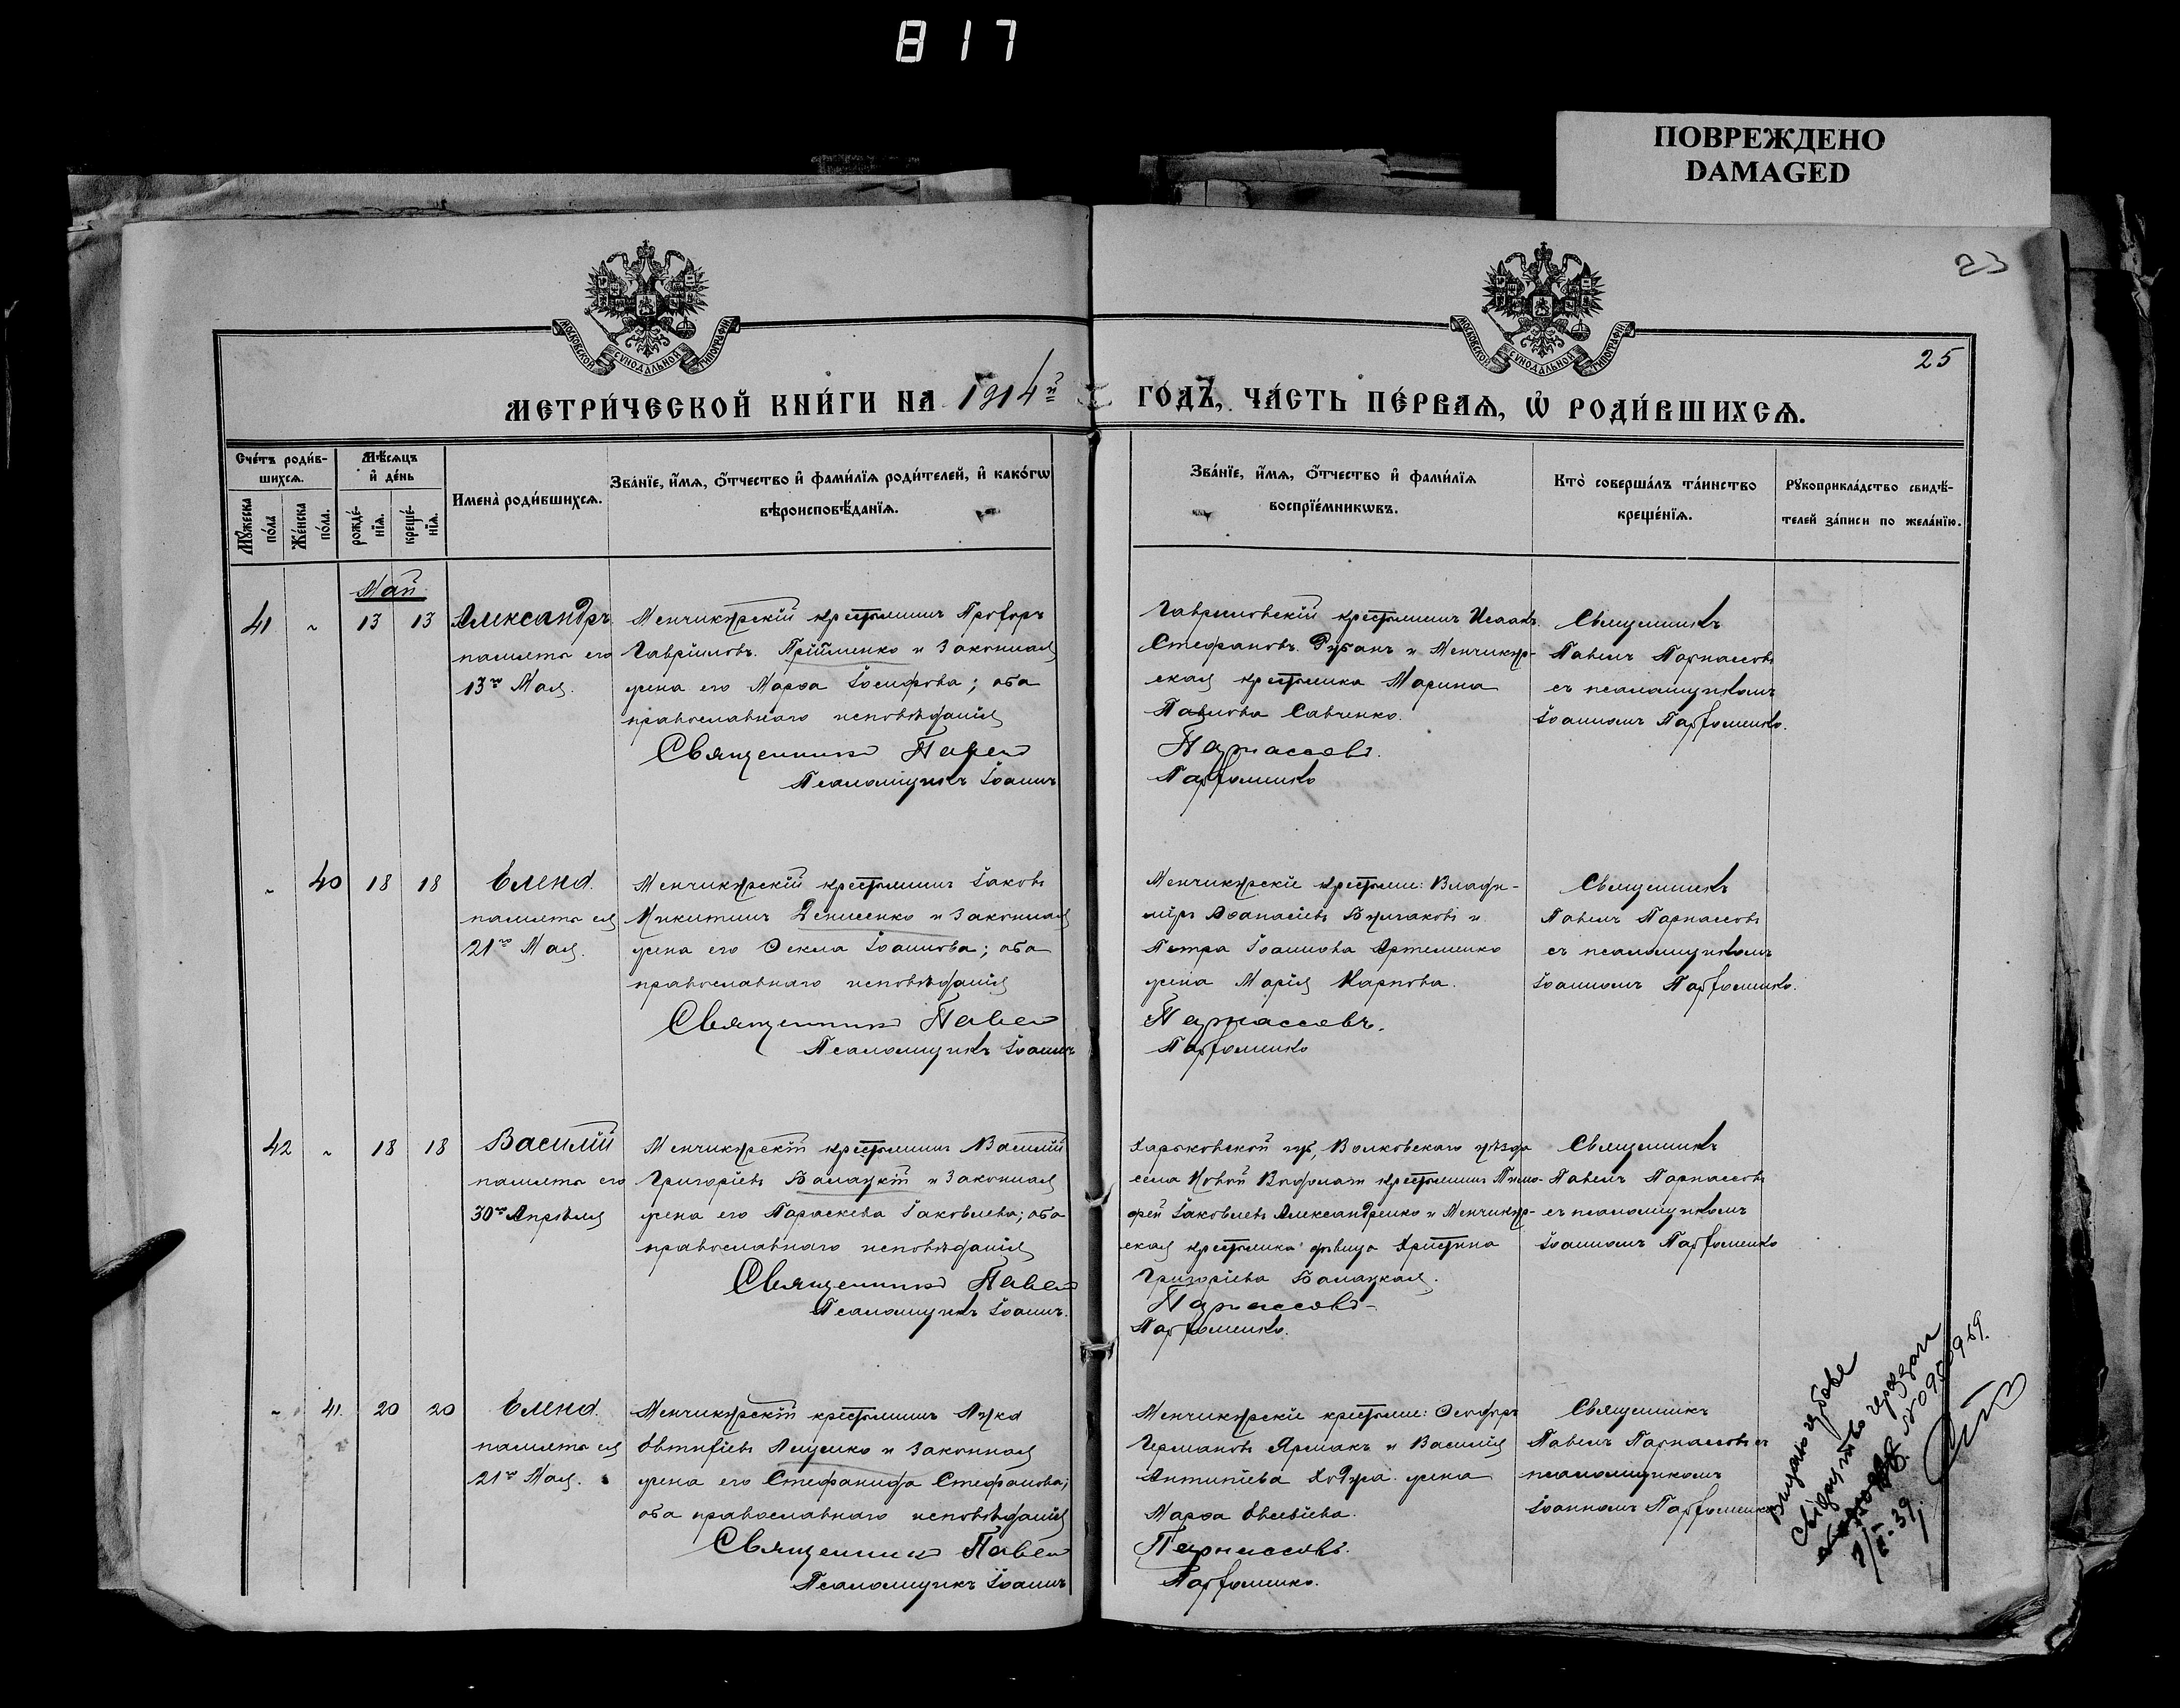 817
ПОВРЕЖДЕНО
DAMAGED
23
МОСКОВСКОЙ СѴНОДАЛЬНОЙ ТИПОГРАФІИ
МОСКОВСКОЙ СѴНОДАЛЬНОЙ ТИПОГРАФІИ
25
МЕТРИ́ЧЕСКОЙ КНИ́ГИ НА 1914й ГО́ДЪ, ЧА́СТЬ ПЕ́РВАѦ, Ѽ РОДИ́ВШИХСѦ.
Сче́тъ роди́в-
шихсѧ.
Мѣ́сѧцъ
и҆ де́нь
Мꙋ́жеска
по́ла
Же́нска
по́ла.
рожде́-
нїѧ.
креще́-
нїѧ.
И҆мена̀ роди́вшихсѧ.
Зва́нїе, и҆́мѧ, ѻ҆́тчество и҆ фами́лїѧ роди́телей, и҆ како́гѡ
вѣроисповѣ́данїѧ.
Зва́нїе, и҆́мѧ, ѻ҆́тчество и҆ фами́лїѧ
воспрїе́мникѡвъ.
Кто̀ соверша́лъ та́инство
креще́нїѧ.
Рꙋкоприкла́дство свидѣ́-
телей за́писи по жела́нїю.
Май
41 „ 13 13 Александръ
память его
13го Мая.
Менчикурскій крестьянинъ Прохоръ
Гавріиловъ Прійменко и законная
жена его Марѳа Іосифова; оба
православнаго исповѣданія
Священникъ Павел
Псаломщикъ Іоаннъ
Гавриловскій крестьянинъ Исаакъ
Стефановъ Рубанъ и Менчикур-
ская крестьянка Марина
Павлова Савченко.
Парнассовъ.
Парфоменко
Священникъ
Павелъ Парнассовъ
съ псаломщикомъ
Іоанномъ Парфоменко.
„ 40 18 18 Елена.
память ея
21го Мая.
Менчикурскій крестьянинъ Іаковъ
Никитинъ Денисенко и законная
жена его Ѳекла Іоаннова; оба
православнаго исповѣданія
Священникъ Павел
Псаломщикъ Іоаннъ
Менчикурскіе крестьяне: Влади-
міръ Аѳанасіевъ Булгаковъ и
Петра Іоаннова Артеменко
жена Марія Карпова.
Парнассовъ.
Парфоменко
Священникъ
Павелъ Парнассовъ
съ псаломщикомъ
Іоанномъ Парфоменко.
42 „ 18 18 Василій
память его
30го Апрѣля
Менчикурскій крестьянинъ Василій
Григоріевъ Балацкій и законная
жена его Параскева Іаковлева; оба
православнаго исповѣданія
Священникъ Павел
Псаломщикъ Іоаннъ.
Харьковской губ, Волковскаго уѣзда
села Новой Водолаги крестьянинъ Тимо-
фей Іаковлевъ Александренко и Менчикур-
ская крестьянка дѣвица Христина
Григоріева Балацкая.
Парнассовъ
Парфоменко.
Священникъ
Павелъ Парнассовъ
съ псаломщикомъ
Іоанномъ Парфоменко
„ 41. 20 20 Елена.
память ея
21го Мая.
Менчикурскій крестьянинъ Лука
Евтихіевъ Ляшенко и законная
жена его Стефанида Стефанова;
оба православнаго исповѣданія
Священник Павел
Псаломщикъ Іоаннъ
Менчикурскіе крестьяне: Ѳеодоръ
Германовъ Ярмакъ и Василія
Антипіева жена
Марѳа Евсевіева.
Парнассовъ.
Парфоменко.
Священникъ
Павелъ Парнассовъ съ
псаломщикомъ
Іоанномъ Парфоменко